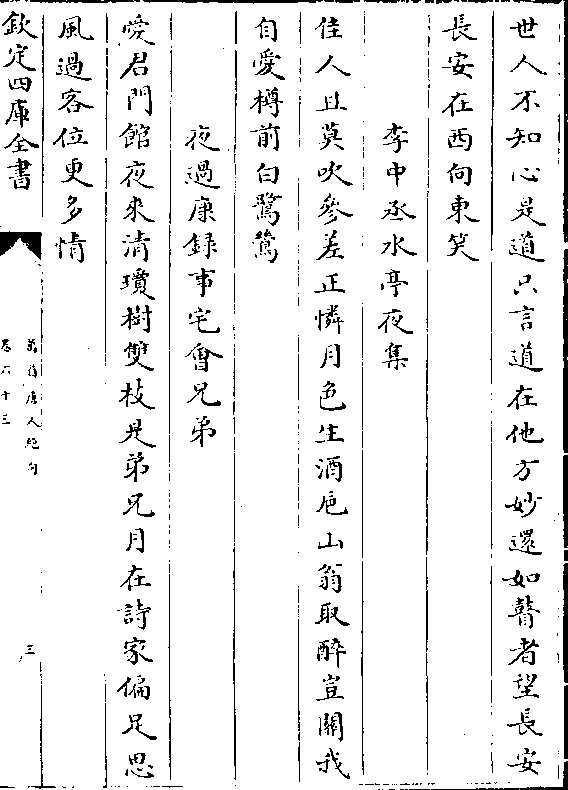 世人不知心是道只言道在他方妙還如瞽者望長安
長安在西向東笑
李中丞水亭夜集
佳人且莫吹參差正憐月色生酒巵山翁取醉豈關我
自愛樽前白鷺鷥
夜過康録事宅會兄弟
愛君門館夜來清瓊樹雙枝是弟兄月在詩家偏足思
風過客位更多情
欽定四庫全書
萬首唐人絶句
卷六十三
三